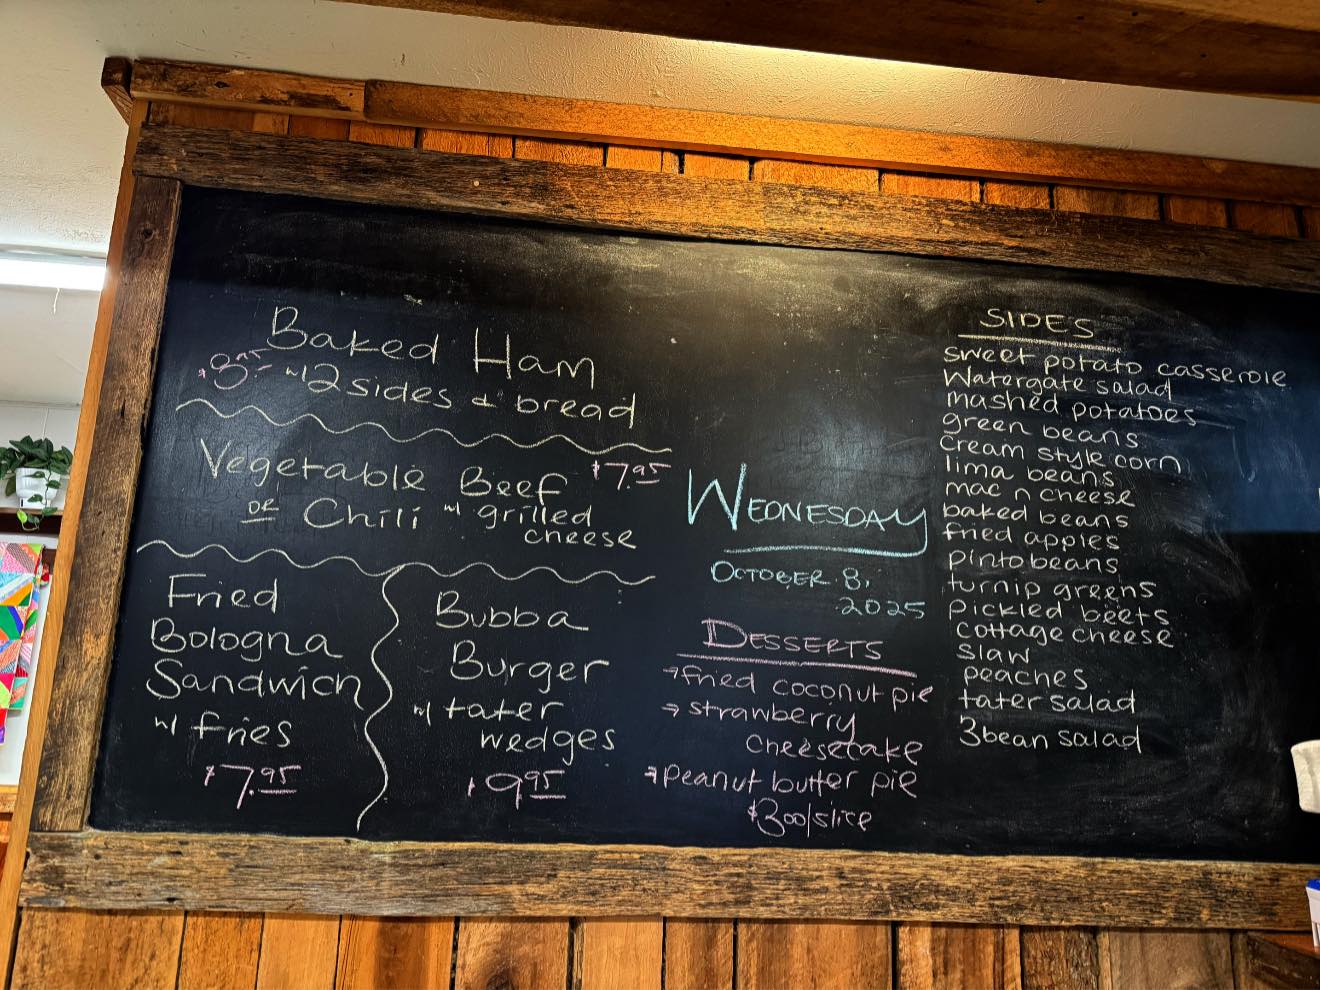 Baked Ham
w/ 2 sides & bread
Vegetable Beef $7.95
OR Chili w/ grilled
cheese
Fried
Bologna
Sandwich
w/ fries
$7.95
Bubba
Burger
w/ tater
wedges
$9.95
WEDNESDAY
OCTOBER 8,
2025
DESSERTS
→fried coconut pie
→strawberry
cheesecake
→peanut butter pie
$3.00/slice
SIDES
sweet potato casserole
Watergate salad
mashed potatoes
green beans
cream style corn
lima beans
mac n cheese
baked beans
fried apples
pinto beans
turnip greens
pickled beets
cottage cheese
slaw
peaches
tater salad
3bean salad